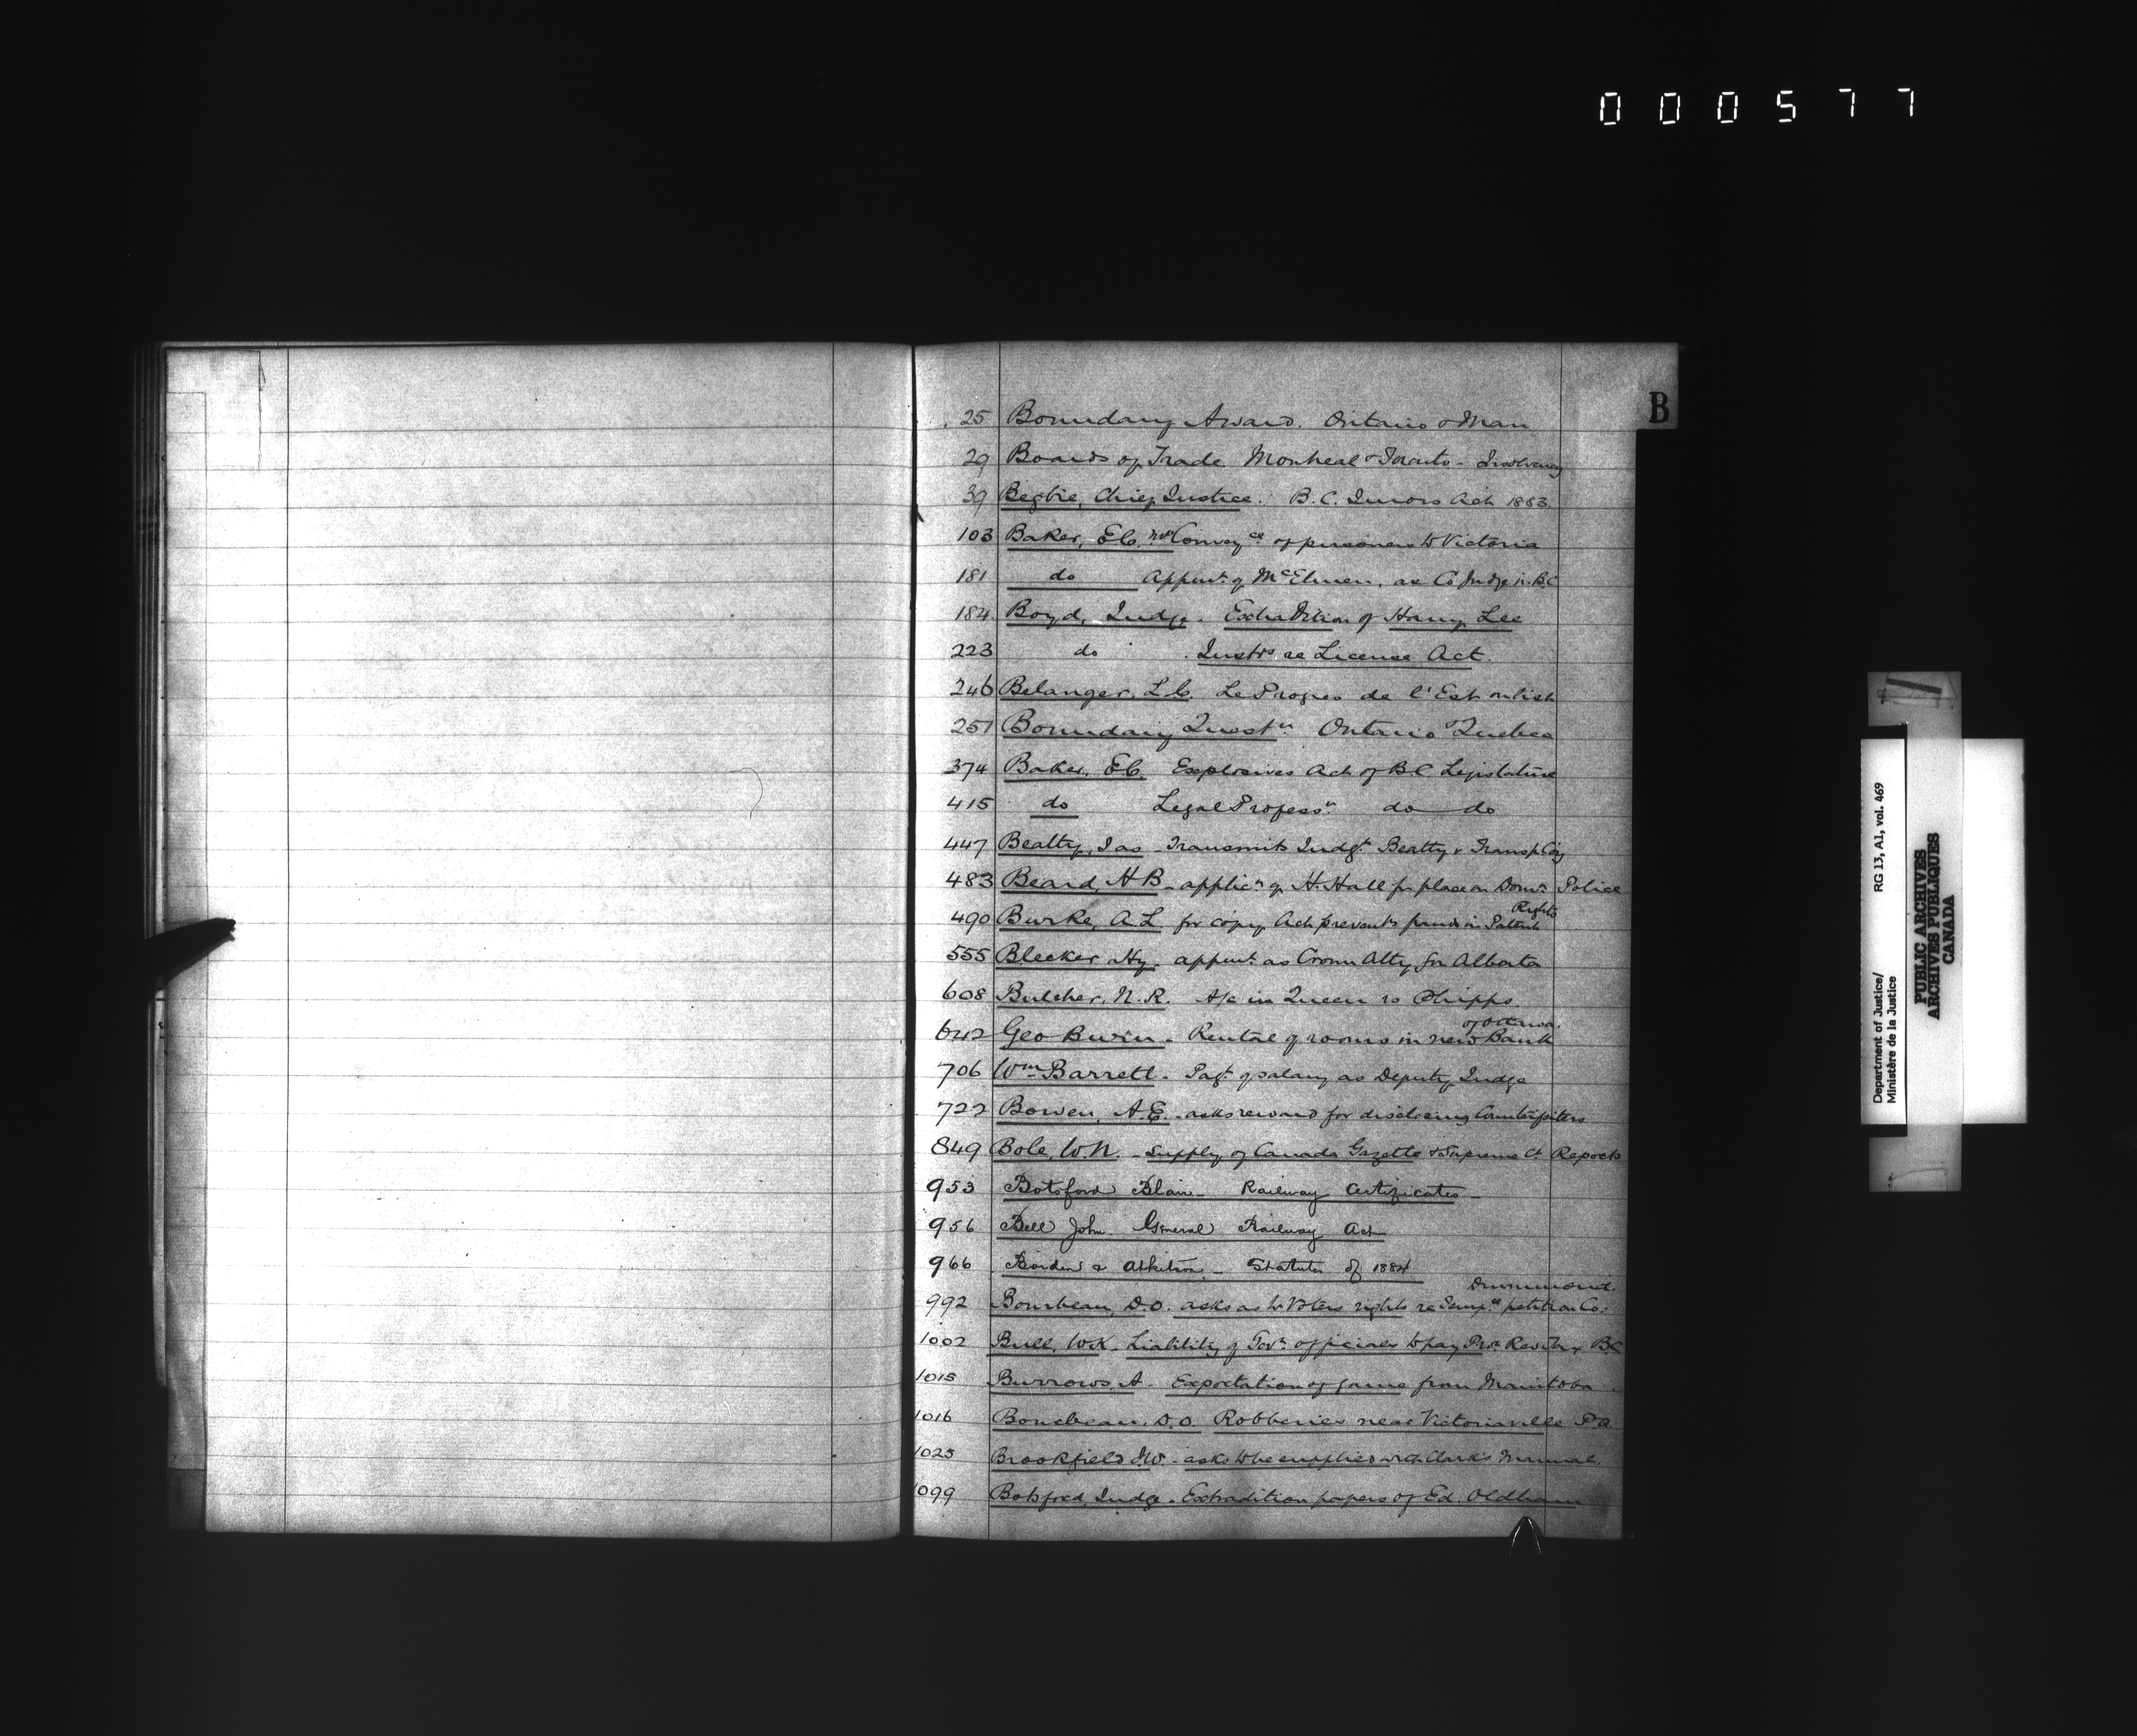 000577
B
25 Boundary Award. Ontario & Man
29 Boards of Trade Montreal & Toronto - Insolvency
39 Begbie, Chief Justice. B.C. Jurors Act 1883.
103 Baker, E.C. Convey ce of prisoners to Victoria
181 do Appmt of as Co Judge in B.C.
184. Boyd, Judge. Extradition of Harry Lee
223 do Instrs re License Act.
246 Belanger, L.C. Le Progres de l'Est on list
251 Boundary Questn Ontario & Quebec
374 Baker, E.C. Explosives Act of B.C. Legislature
415 do Legal Professn do do
447 Beatty, Jas - Transmits Judgt Beatty v
483 Beard, H B. - applicn of H. Hall for place on Domn Police
Rights
490 Burke, A.L. for copy Act prevent frauds in Patent
555 Bleeker Hy. appmt as Crown Atty for Alberta
608 Butcher, N.R. A/c in Queen vs Phipps
of Ottawa.
642 Geo - Rental of rooms in new Bank
706 Wm Barrett. Payt of salary as Deputy Judge
722 Bowen, A.E. - asks reward for disclosing Counterfeiters
849 Bole, W.N. - Supply of Canada Gazette & Supreme Ct Reports
953 Botsford Blair - Railway Certificates -
956 Bell John General Railway Act
966 Borden & Atkinson - Statutes of 1884
Drummond
992 Bourbeau, D.O. asks as to Voters rights re Tempce petition Co.
1002 Bull, W.K. Liability of Govt officials to pay Prov. Rev. Tax B.C.
1015 Burrows, A. Exportation of game from Manitoba.
1016 Bourbeau, D.O. Robberies near Victoriaville P.Q.
1025 Brookfield J.W. - asks to be supplied with Clark's Manual.
1099 Botsford, Judge. Extradition papers of Ed. Oldham
Department of Justice/
Ministère de la Justice
RG 13, A1, vol. 469
PUBLIC ARCHIVES
ARCHIVES PUBLIQUES
CANADA